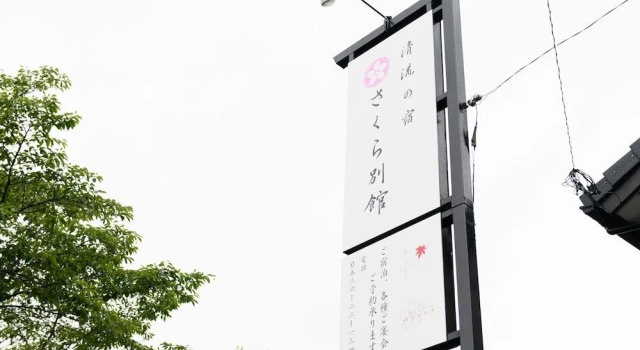 清流の宿
さくら別館
ご宿泊、各種ご宴会
ご予約承ります
電話